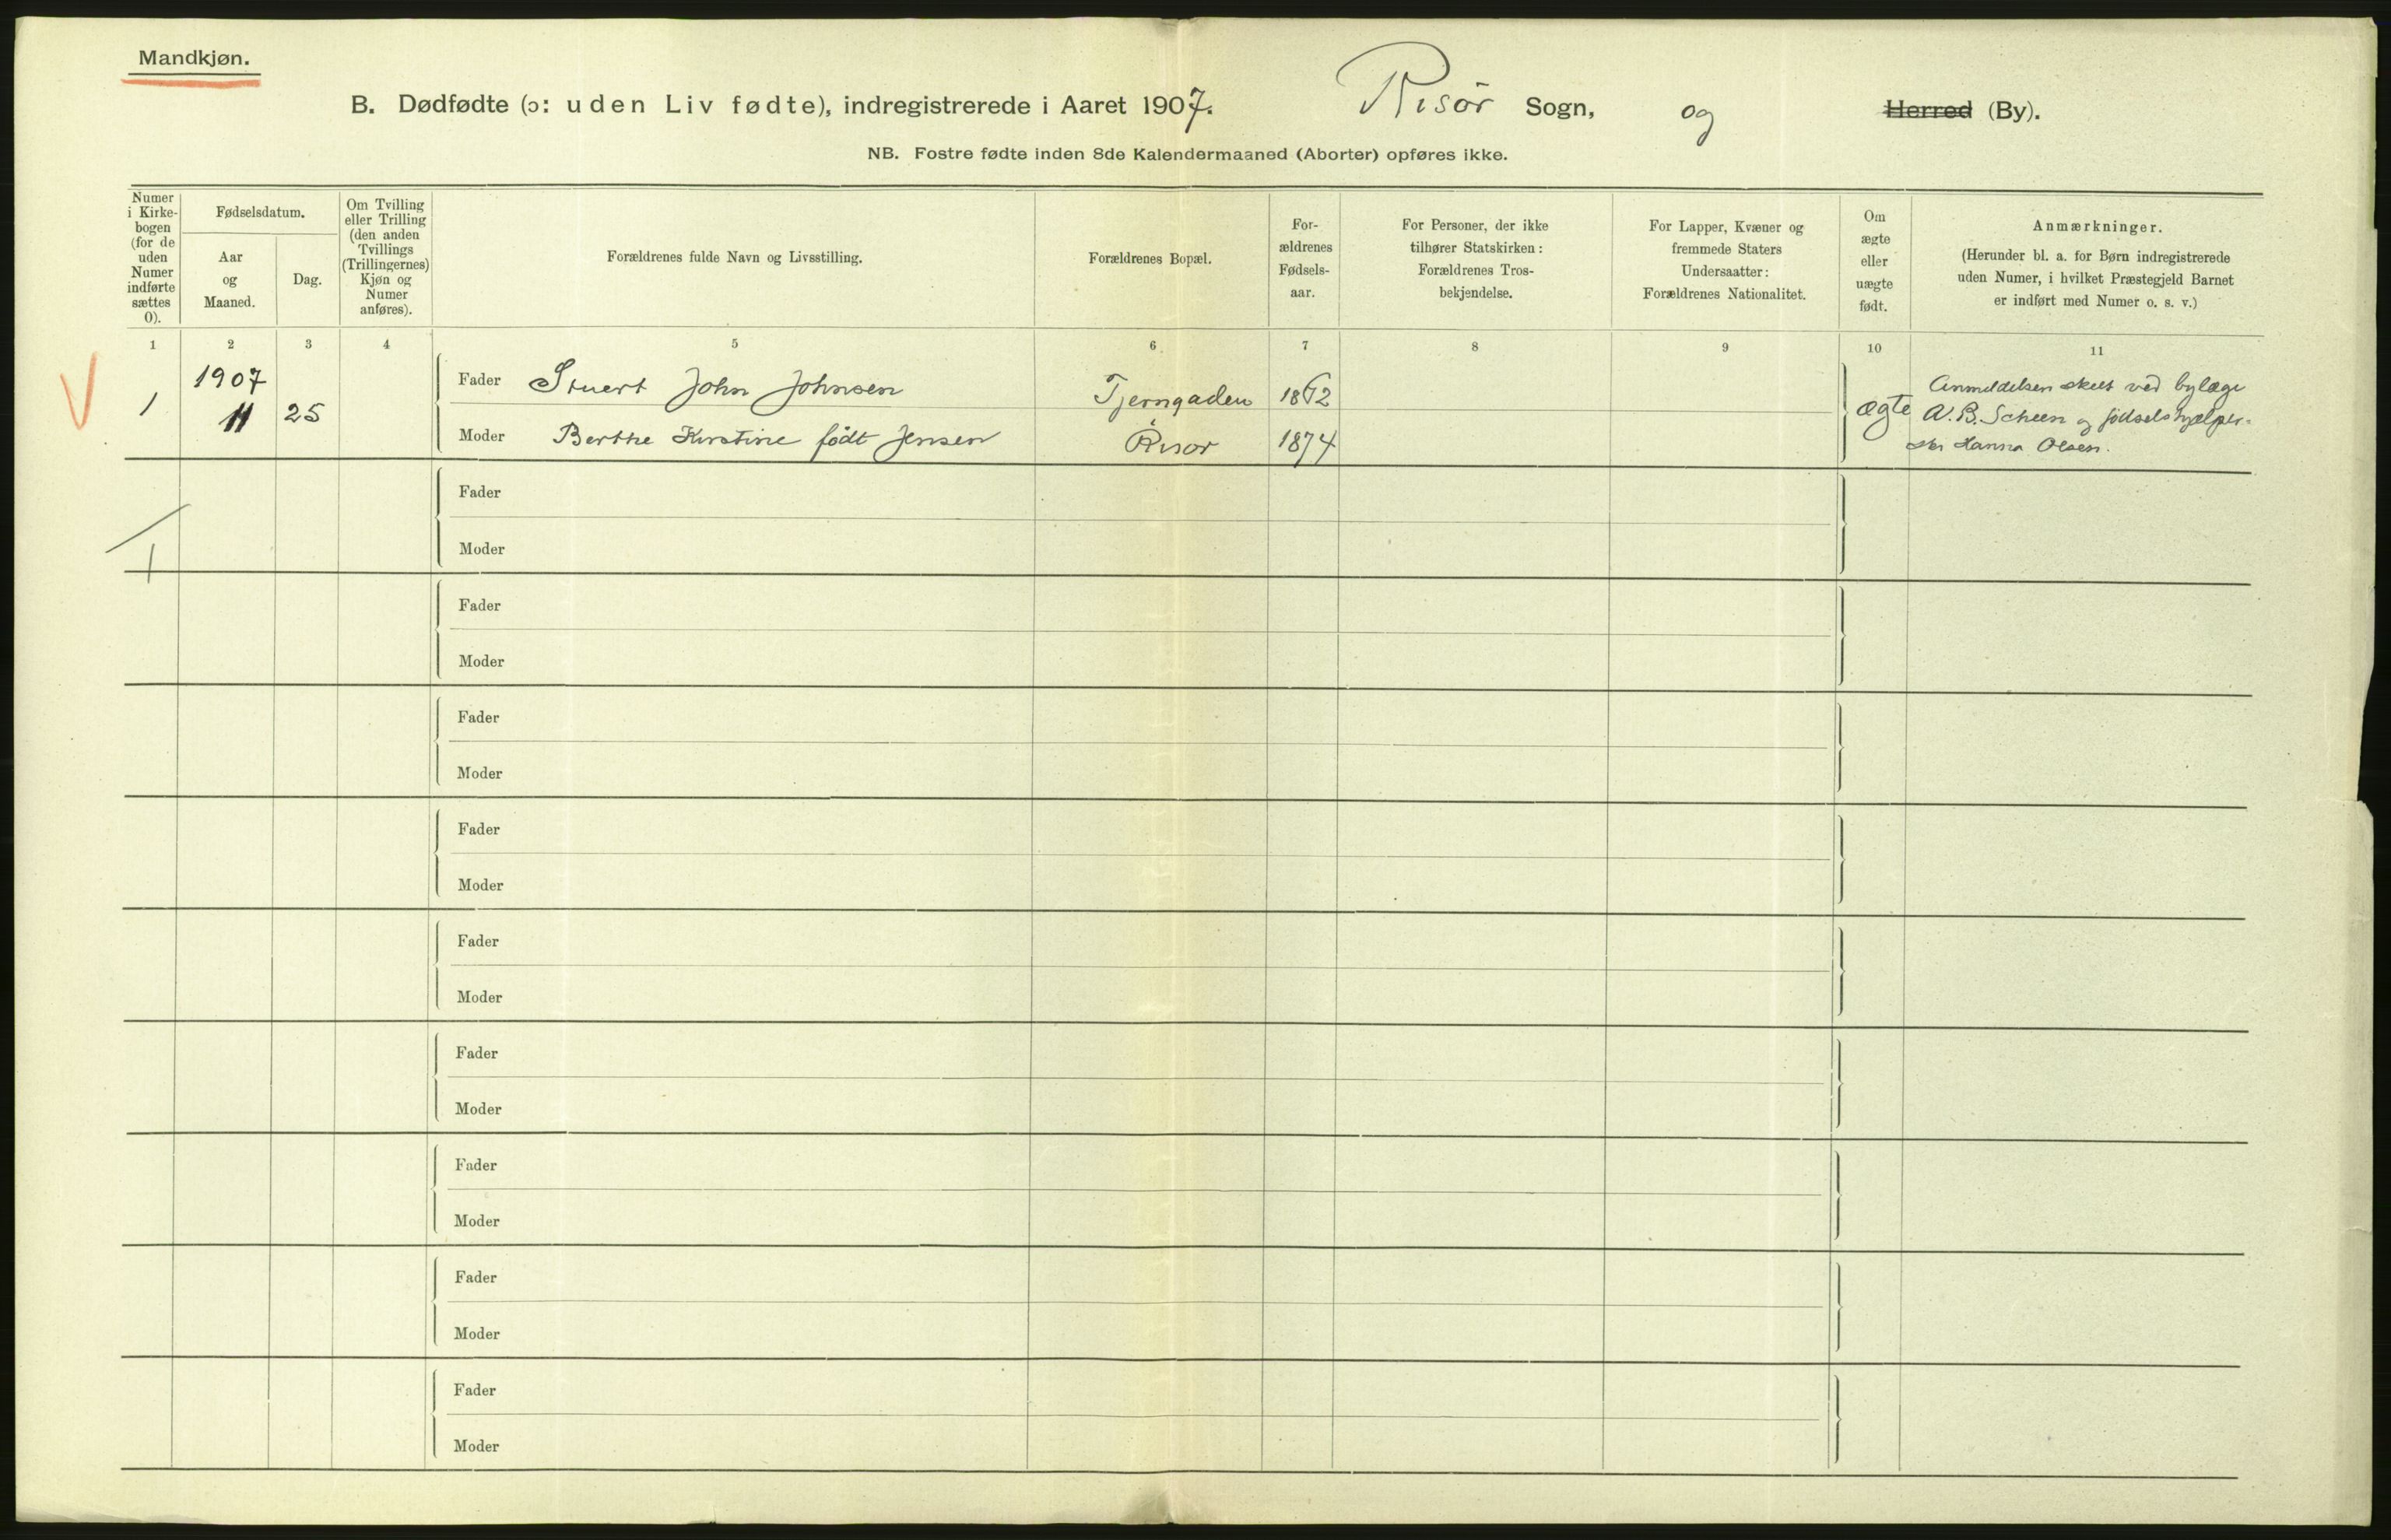 Mandkjøn.
B. Dødfødte (ɔ: uden Liv fødte), indregistrerede i Aaret 1907. Risör Sogn, og Herred (By).
NB. Fostre fødte inden 8de Kalendermaaned (Aborter) opføres ikke.
Numer
i Kirke-
bogen
(for de
uden
Numer
indførte
sættes
0).
Fødselsdatum.
Aar
og
Maaned.
Dag.
Om Tvilling
eller Trilling
(den anden
Tvillings
(Trillingernes)
Kjøn og
Numer
anføres).
Forældrenes fulde Navn og Livsstilling.
Forældrenes Bopæl.
For-
ældrenes
Fødsels-
aar.
For Personer, der ikke
tilhører Statskirken:
Forældrenes Tros-
bekjendelse.
For Lapper, Kvæner og
fremmede Staters
Undersaatter:
Forældrenes Nationalitet.
Om
ægte
eller
uægte
født.
Anmærkninger.
(Herunder bl. a. for Børn indregistrerede
uden Numer, i hvilket Præstegjeld Barnet
er indført med Numer o. s. v.)
1 2 3 4 5 6 7 8 9 10 11
V
1
1907
11 25
Fader Stuert John Johnsen
Tjerngaden
Moder Berthe Kirstine født Jensen
Risør
1874
ægte
Anmeldelsen skeet ved bylæge
A. B. Scheen og fødselshjælper-
ske Hanna Olsen.
1
Fader
Moder
Fader
Moder
Fader
Moder
Fader
Moder
Fader
Moder
Fader
Moder
Fader
Moder
Fader
Moder
Fader
Moder